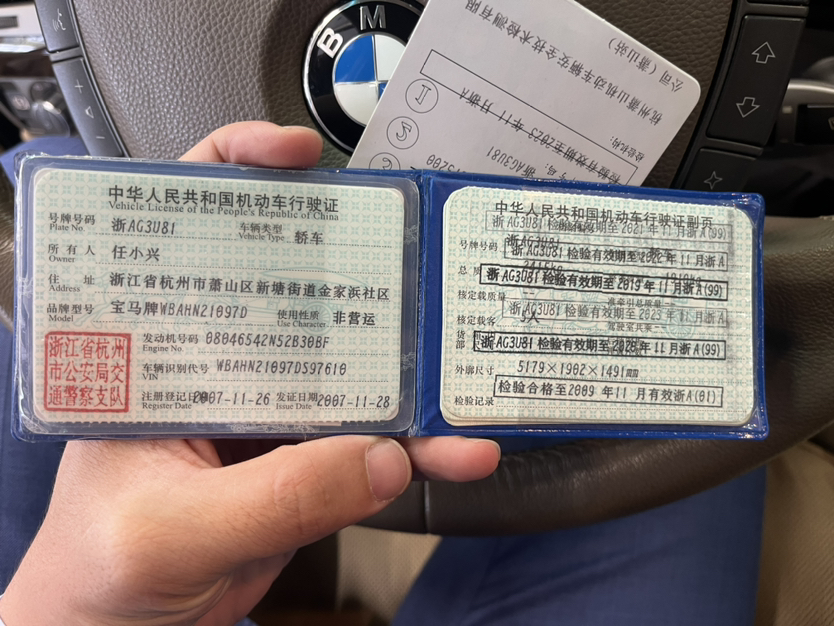 BM
杭州萧山机动车辆安全技术检测有限
公司（萧山站）
检验有效期至2023年11月浙A
浙AG3U81
中华人民共和国机动车行驶证
Vehicle License of the People's Republic of China
号牌号码 浙AG3U81 车辆类型 轿车
Plate No. Vehicle Type
所有人 任小兴
Owner
住址 浙江省杭州市萧山区新塘街道金家浜社区
Address
品牌型号 宝马牌WBAHN21097D 使用性质 非营运
Model Use Character
浙江省杭州
市公安局交
通警察支队
发动机号码 08046542N52B30BF
Engine No.
车辆识别代号 WBAHN21097DS97610
VIN
注册登记日期 2007-11-26 发证日期 2007-11-28
Register Date Issue Date
中华人民共和国机动车行驶证副页
检验有效期至2021年11月浙A(99)
号牌号码 浙AG3U81
浙AG3U81 检验有效期至2022年11月浙A
浙AG3U81 检验有效期至2019年11月浙A(99)
核定载质量 准牵引总质量
浙AG3U81 检验有效期至2023年11月浙A
核定载客 5人 驾驶室共乘
浙AG3U81 检验有效期至2020年11月浙A(99)
外廓尺寸 5179×1902×1491mm
检验合格至2009年11月有效浙A(01)
检验记录